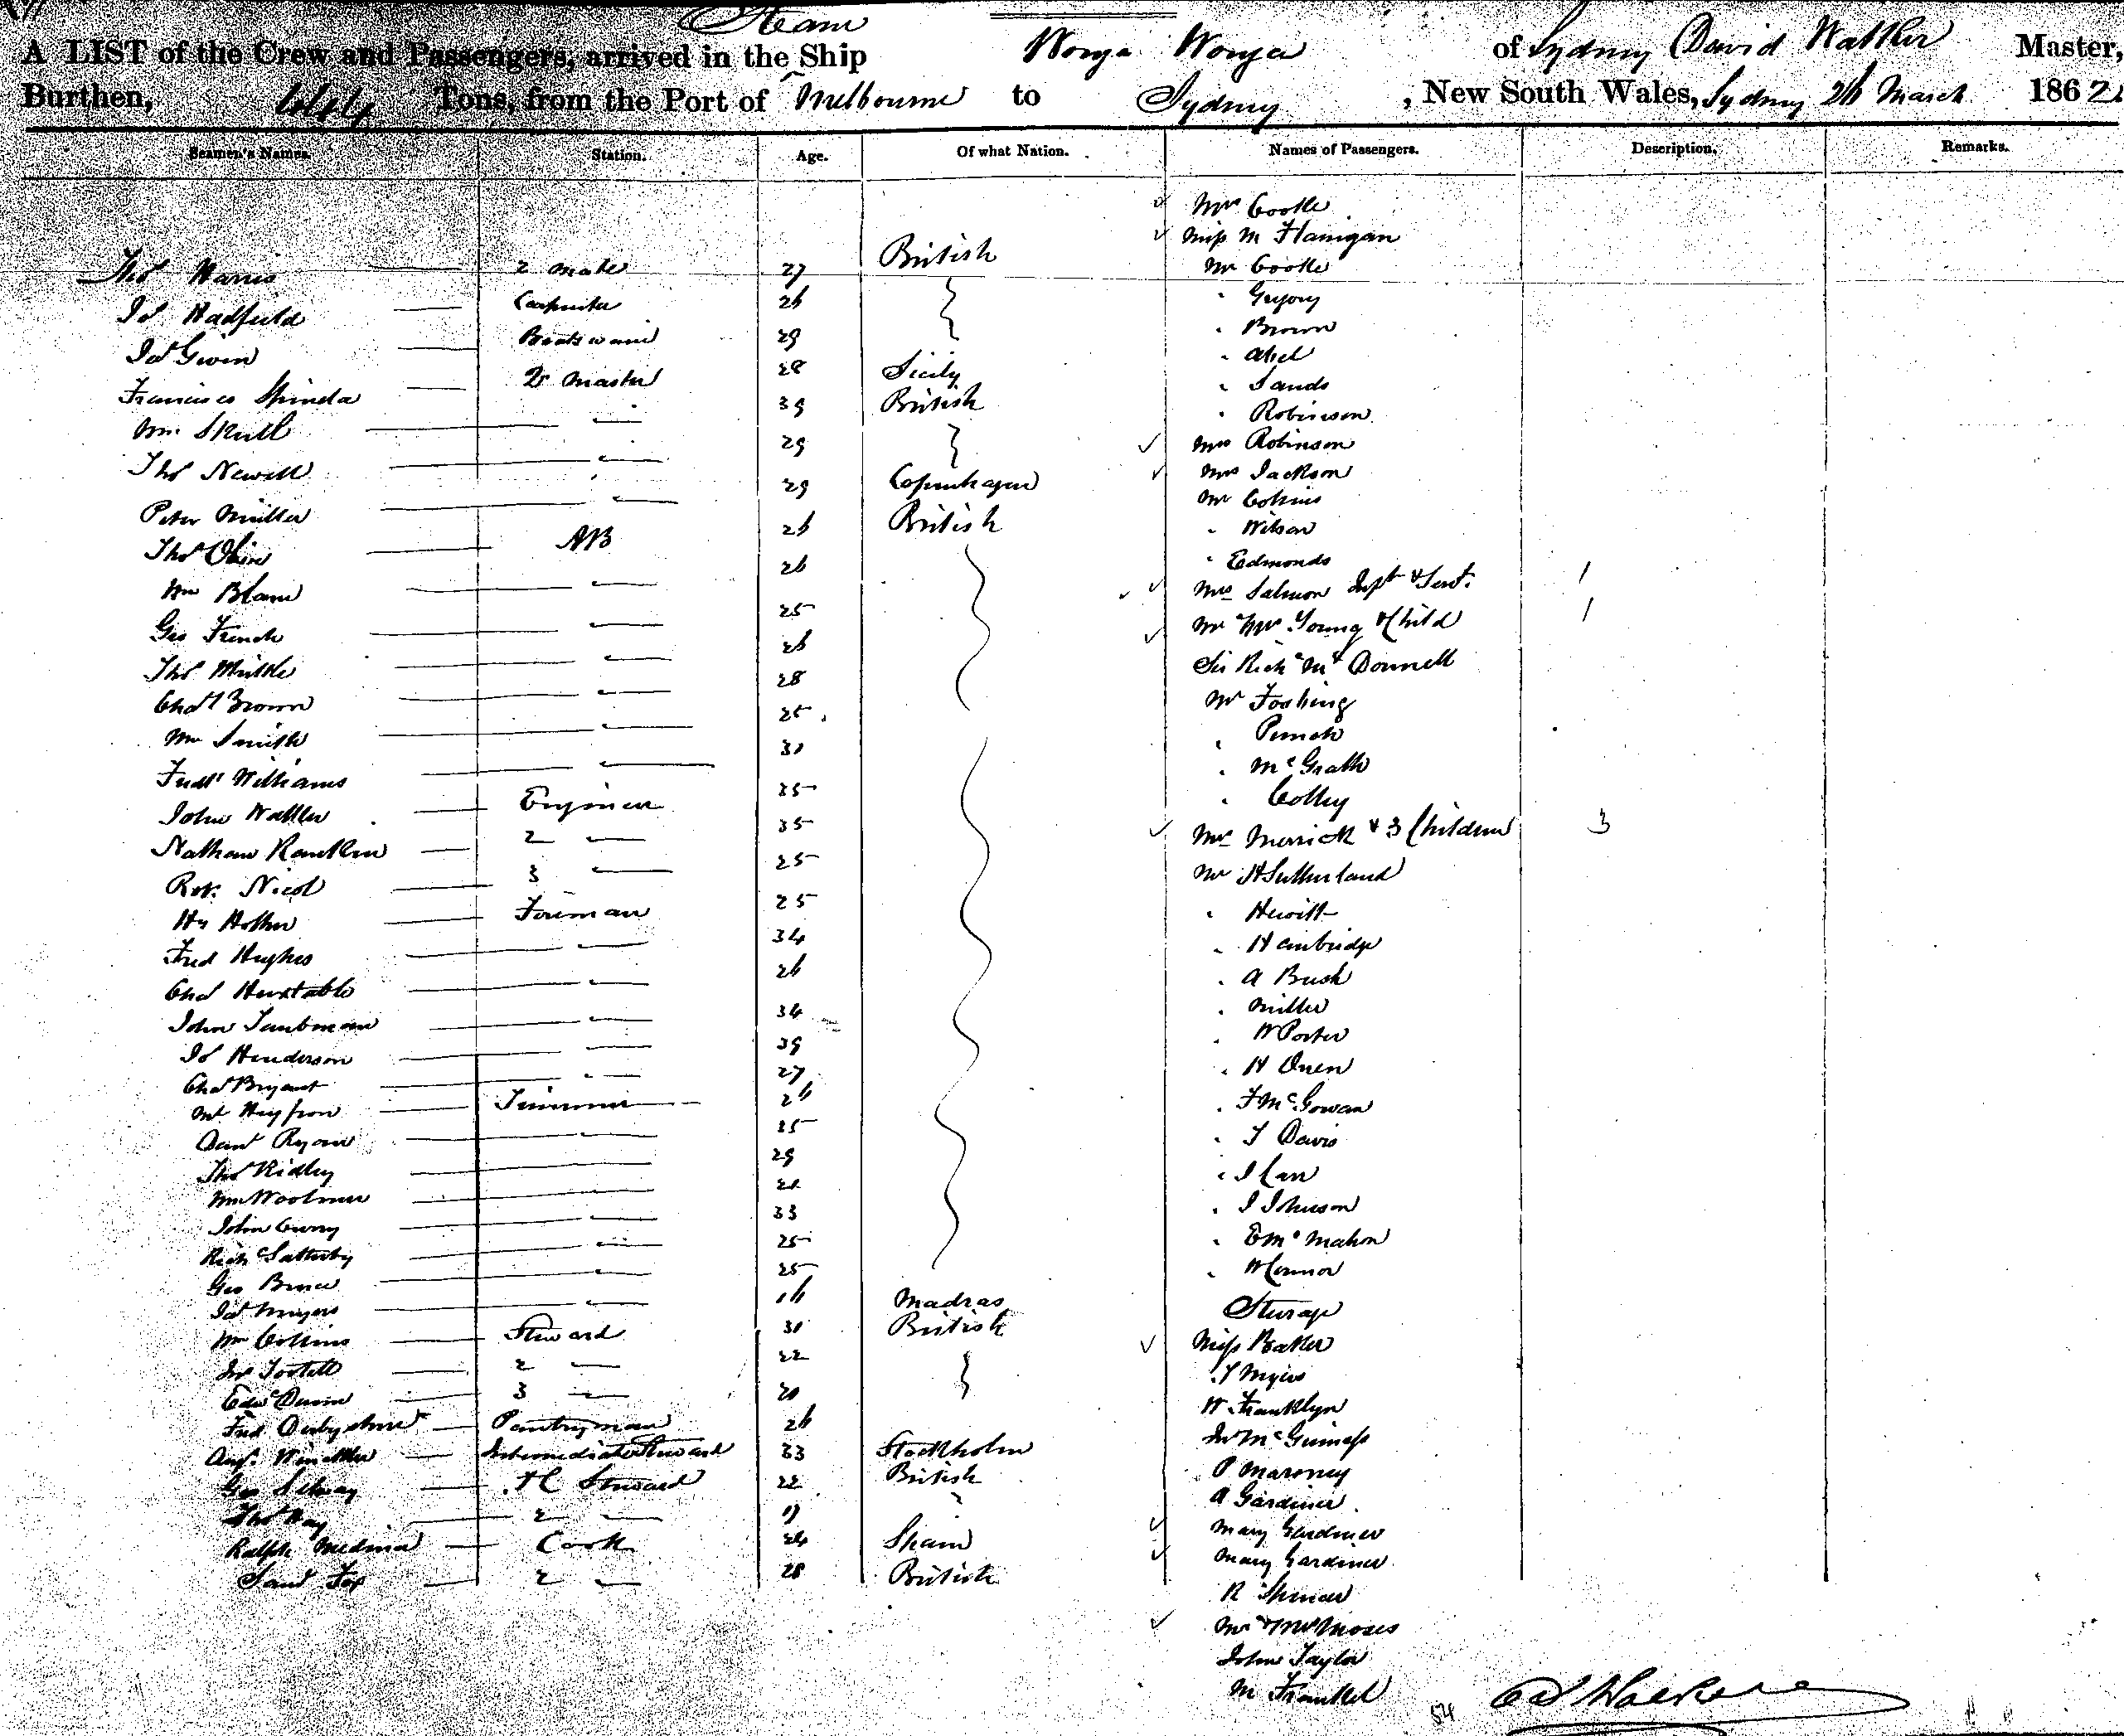 Steam
A LIST of the Crew and Passengers, arrived in the Ship Wonga Wonga of Sydney David Walker Master,
Burthen, Tons, from the Port of Melbourne to Sydney , New South Wales, Sydney 26 March 1862
Seamen's Names. Station. Age. Of what Nation. Names of Passengers. Description. Remarks.
Mrs Cooke
Miss M Flanigan
Thos Harris 2 Mate 27 British Mr Cooke
Js Hadfield Carpenter 26 " Gregory
Jas Given Boatswain 29 " Brown
" Abel
Francisco Spinda Qr Master 28 Sicily " Sands
Wm Skull " 39 British " Robinson
Thos Newell " 29 Mrs Robinson
Mrs Jackson
Peter Miller " 29 Copenhagen Mr Collins
Thos AB 26 British " Wilson
" Edmonds
Wm Bland " 26 Mrs Salmon & Servt.
Geo French " 25 Mr & Mrs Young & Child 1
Thos " 26 Sir Richd McDonnell
Chas Brown " 28 Mr
Wm Smith " 25
Fredk Williams " 30 " McGrath
John Walker Engineer 35 " Colley
Nathan 2 " 35 Mrs Merrick & 3 Children 3
Rot. Nicol 3 " 25 Mr H Sutherland
Hy Fireman 25 " Hewitt
Fred Hughes " 34 " Hambridge
Chas Huxtable " 26 " A Bush
John Taubman " 34 " Miller
" W Porter
Js Henderson " 39 " H Owen
Chas Bryant " 27
Mt Heyfron Trimmer 26 " F McGowan
Danl Ryan " 25 " T Davis
Thos Ridley " 29
Wm Woolmer " " J Carr
John Curry " 33 " J Johnson
Richd Satterby " 25 " E McMahon
Geo Bruce " 25 " W Connor
Jas Meyers " 16 Madras Steerage
Wm Collins Steward 30 British Miss Baker
Jno Tootell 2 " 22 " T Myers
Edwd Dunn 3 " 20 W Franklyn
Fred Derbyshire Pantryman 26 Jno McGuiness
Augt. Winckler Intermediate Steward 33 Stockholm P Maroney
Geo Selway F C Steward 22 British A Gardiner
Thos Hay 2 " 19 Mary Gardiner
Ralph Medina Cook 24 Spain Mary Gardiner
Saml Fox 2 " 28 British R Spencer
Mr & Mrs Moses
John Taylor
M Frankel
54 D Walker